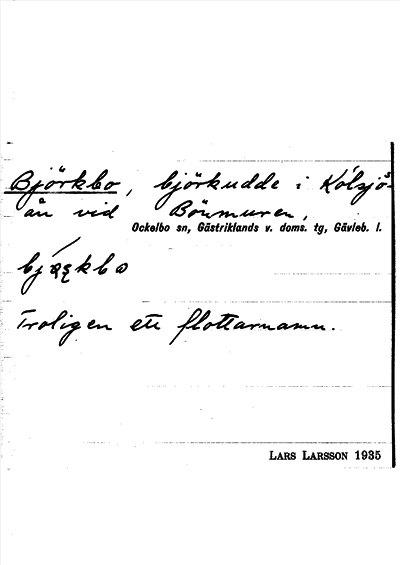 Björkbo, björkudde i Kölsjö-
ån vid Bönmuren,
Ockelbo sn, Gästriklands v. doms. tg, Gävleb. l.
Troligen ett flottarnamn.
LARS LARSSON 1935